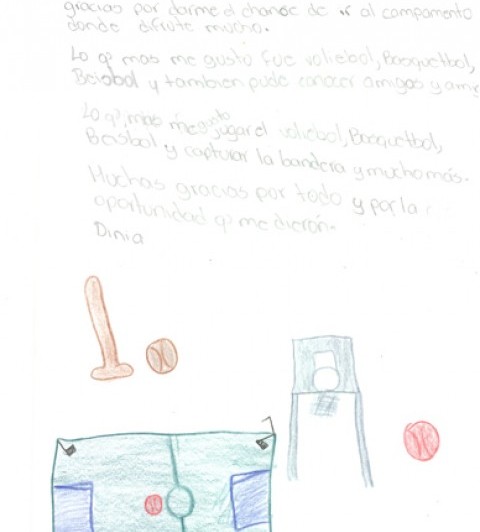 gracias por darme el chance de ir al campamento
donde difrute mucho.
Lo q' mas me gusto fue voliebol, Basquetbol,
Beisbol y tambien pude conocer amigos y
Lo q' mas me gusto jugar el voliebol, Basquetbol,
Beisbol y capturar la bandera y mucho más.
Muchas gracias por todo y por la
oportunidad q' me dieron.
Dinia